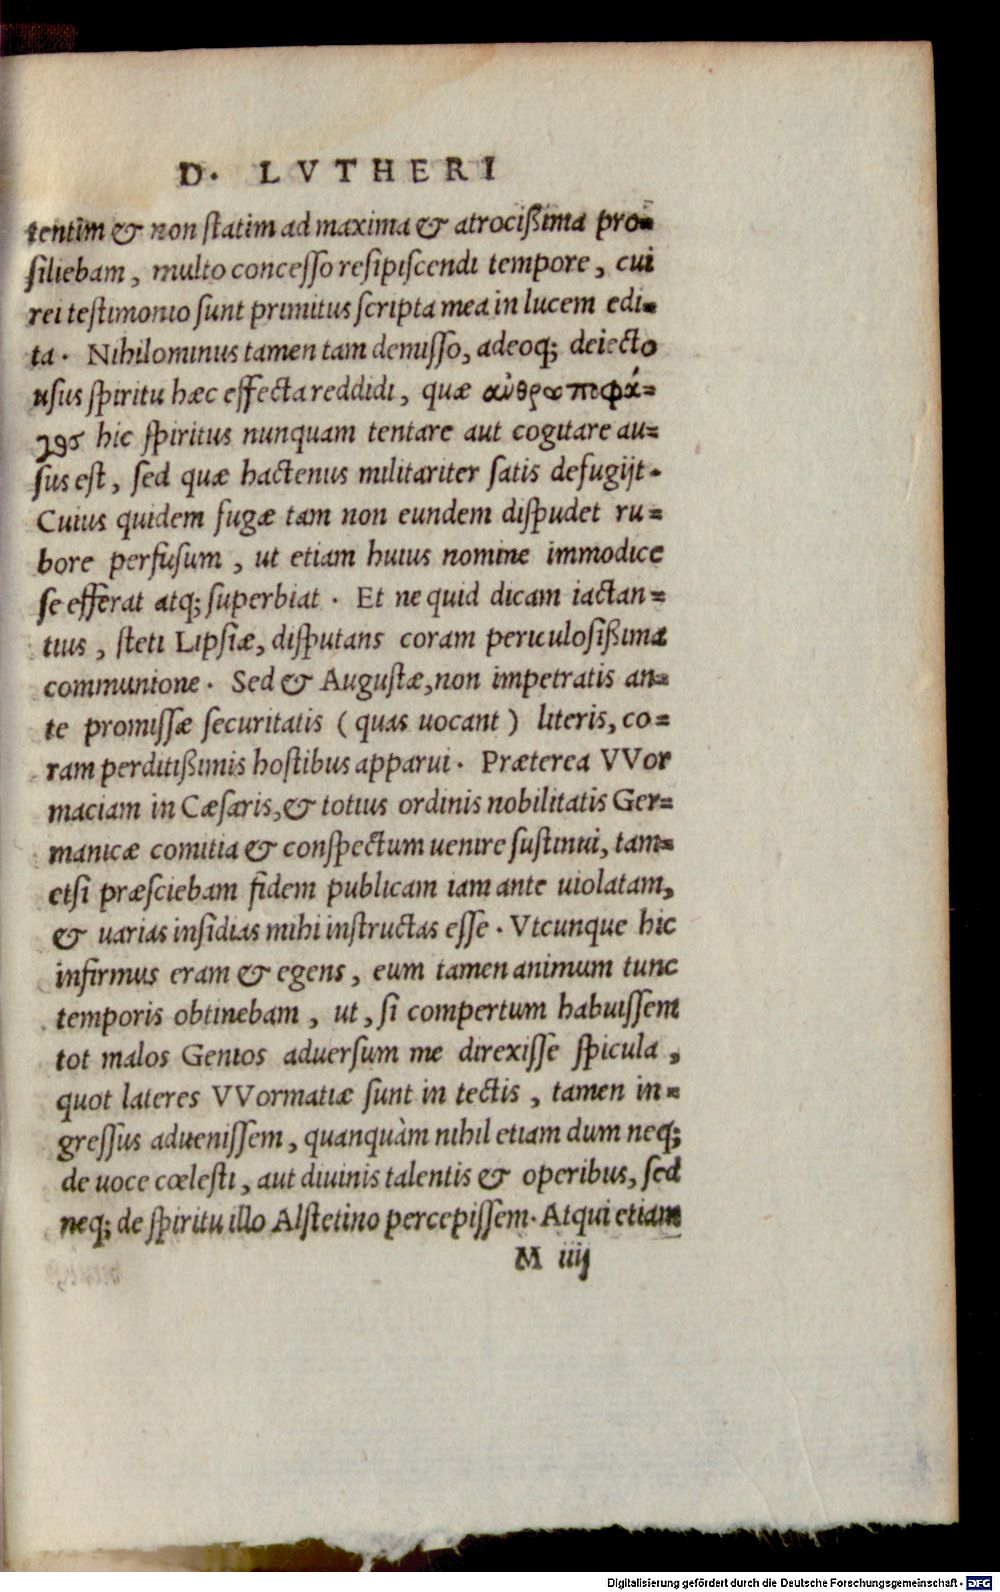 D. LVTHERI
tentim & non ſtatim ad maxima & atrocißima pro=
ſiliebam, multo conceſſo reſipiſcendi tempore, cui
rei teſtimonio ſunt primitus ſcripta mea in lucem edi=
ta. Nihilominus tamen tam demiſſo, adeoq; deiecto
uſus ſpiritu hæc effecta reddidi, quæ ἀνθρωποφά=
γος hic ſpiritus nunquam tentare aut cogitare au=
ſus eſt, ſed quæ hactenus militariter ſatis defugijt.
Cuius quidem fugæ tam non eundem diſpudet ru=
bore perfuſum, ut etiam huius nomine immodice
ſe efferat atq; ſuperbiat. Et ne quid dicam iactan=
tius, ſteti Lipſiæ, diſputans coram periculoſißima
communione. Sed & Auguſtæ, non impetratis an=
te promiſſæ ſecuritatis (quas uocant) literis, co=
ram perditißimis hoſtibus apparui. Præterea VVor
maciam in Cæſaris, & totius ordinis nobilitatis Ger=
manicæ comitia & conſpectum uenire ſuſtinui, tam=
etſi præſciebam fidem publicam iam ante uiolatam,
& uarias inſidias mihi inſtructas eſſe. Vtcunque hic
infirmus eram & egens, eum tamen animum tunc
temporis obtinebam, ut, ſi compertum habuiſſem
tot malos Genios aduerſum me direxiſſe ſpicula,
quot lateres VVormatiæ ſunt in tectis, tamen in=
greſſus adueniſſem, quanquàm nihil etiam dum neq;
de uoce cœleſti, aut diuinis talentis & operibus, ſed
neq; de ſpiritu illo Alſtetino percepiſſem. Atqui etiam
M iiij
Digitalisierung gefördert durch die Deutsche Forschungsgemeinschaft - DFG